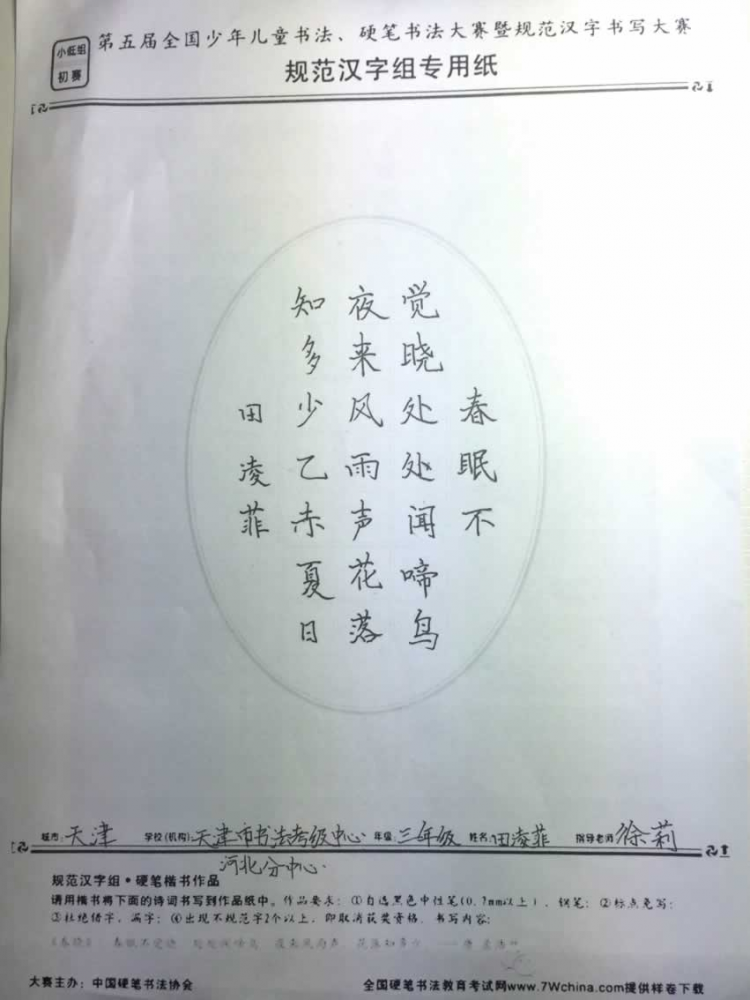 小低组
初赛
第五届全国少年儿童书法、硬笔书法大赛暨规范汉字书写大赛
规范汉字组专用纸
春眠不
觉晓处处闻啼鸟
夜来风雨声花落
知多少乙未夏日
田凌菲
城市:天津 学校(机构):天津市书法考级中心 年级:三年级 姓名:田凌菲 指导老师:徐莉
河北分中心
规范汉字组·硬笔楷书作品
请用楷书将下面的诗词书写到作品纸中。作品要求:①自选黑色中性笔(0.7mm以上)、钢笔;②标点免写;
③杜绝错字,漏字;④出现不规范字2个以上,即取消获奖资格。书写内容:
《春晓》 春眠不觉晓 处处闻啼鸟 夜来风雨声 花落知多少
大赛主办:中国硬笔书法协会
全国硬笔书法教育考试网www.7Wchina.com提供样卷下载